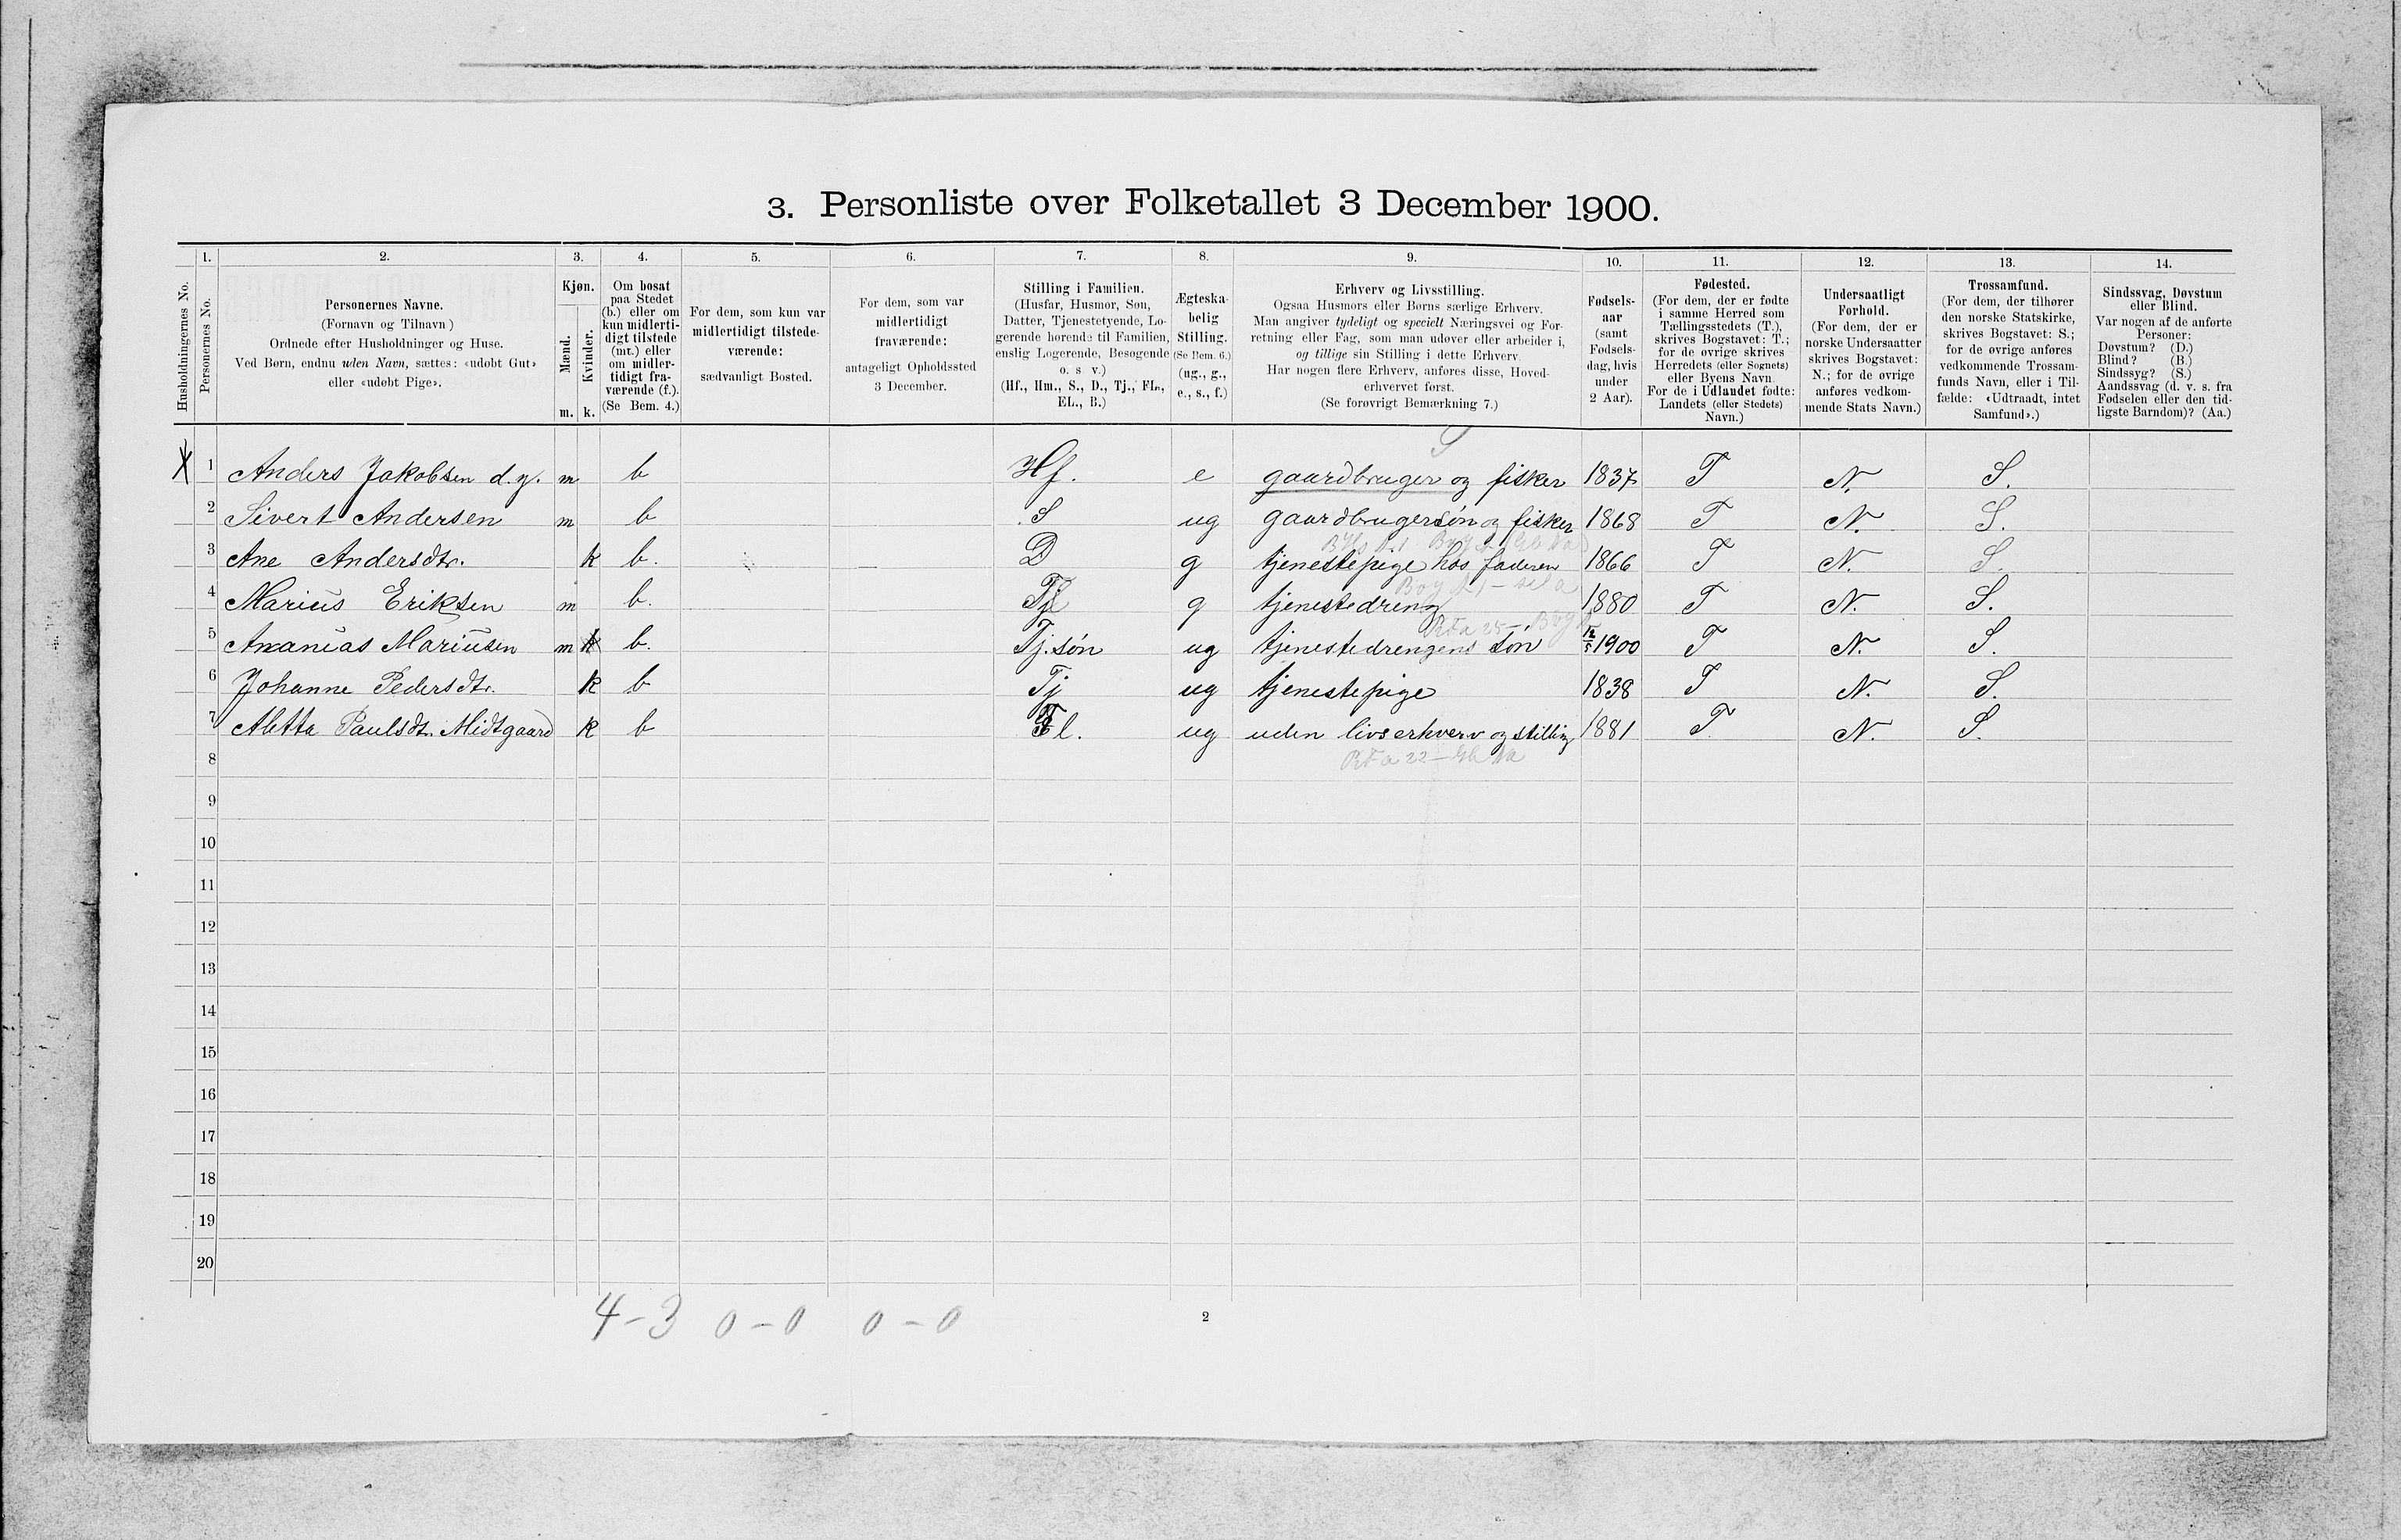 3. Personliste over Folketallet 3 December 1900.
Husholdningernes No.
1.
Personernes No.
2.
Personernes Navne.
(Fornavn og Tilnavn)
Ordnede efter Husholdninger og Huse.
Ved Børn, endnu uden Navn, sættes: «udøbt Gut»
eller «udøbt Pige».
3.
Kjøn.
Mænd.
Kvinder.
m. k.
4.
Om bosat
paa Stedet
(b.) eller om
kun midlerti-
digt tilstede
(mt.) eller
om midler-
tidigt fra-
værende (f.).
(Se Bem. 4.)
5.
For dem, som kun var
midlertidigt tilstede-
værende:
sædvanligt Bosted.
6.
For dem, som var
midlertidigt
fraværende:
antageligt Opholdssted
3 December.
7.
Stilling i Familien.
(Husfar, Husmor, Søn,
Datter, Tjenestetyende, Lo-
gerende hørende til Familien,
enslig Logerende, Besøgende
o. s v.)
(Hf., Hm., S., D., Tj., FL.,
EL., B.)
8.
Ægteska-
belig
Stilling.
(Se Bem. 6.)
(ug., g.,
e., s., f.)
9.
Erhverv og Livsstilling.
Ogsaa Husmors eller Børns særlige Erhverv.
Man angiver tydeligt og specielt Næringsvei og For-
retning eller Fag, som man udøver eller arbeider i,
og tillige sin Stilling i dette Erhverv.
Har nogen flere Erhverv, anføres disse, Hoved-
erhvervet først.
(Se forøvrigt Bemærkning 7.)
10.
Fødsels-
aar
(samt
Fødsels-
dag, hvis
under
2 Aar).
11.
Fødested.
(For dem, der er fødte
i samme Herred som
Tællingsstedets (T.),
skrives Bogstavet: T.;
for de øvrige skrives
Herredets (eller Sognets)
eller Byens Navn.
For de i Udlandet fødte:
Landets (eller Stedets)
Navn.)
12.
Undersaatligt
Forhold.
(For dem, der er
norske Undersaatter
skrives Bogstavet:
N.; for de øvrige
anføres vedkom-
mende Stats Navn.)
13.
Trossamfund.
(For dem, der tilhører
den norske Statskirke,
skrives Bogstavet: S.;
for de øvrige anføres
vedkommende Trossam-
funds Navn, eller i Til-
fælde: «Udtraadt, intet
Samfund».)
14.
Sindssvag, Døvstum
eller Blind.
Var nogen af de anførte
Personer:
Døvstum? (D.)
Blind? (B.)
Sindssyg? (S.)
Aandssvag (d. v. s. fra
Fødselen eller den tid-
ligste Barndom)? (Aa.)
X 1 Anders Jakobsen d.y. m b Hf. e gaardbruger og fisker 1837 T N. S.
2 Sivert Andersen m b S ug gaardbrugersøn og fisker 1868 T N. S.
3 Ane Andersdtr. k b. D g tjenestepige hos faderen 1866 T N. S.
4 Marius Eriksen m b. Tj g tjenestedreng 1880 T N. S.
5 Ananias Mariusen m k b. Tj. søn ug tjenestedrengens søn 1900 T N. S.
6 Johanne Pedersdtr. k b Tj ug tjenestepige 1838 T N. S.
7 Aletta Paulsdt. Midtgaard k b Fl. ug uden livserhverv og stilling 1881 T N. S.
8
9
10
11
12
13
14
15
16
17
18
19
20
4 - 3 0 - 0 0 - 0
2